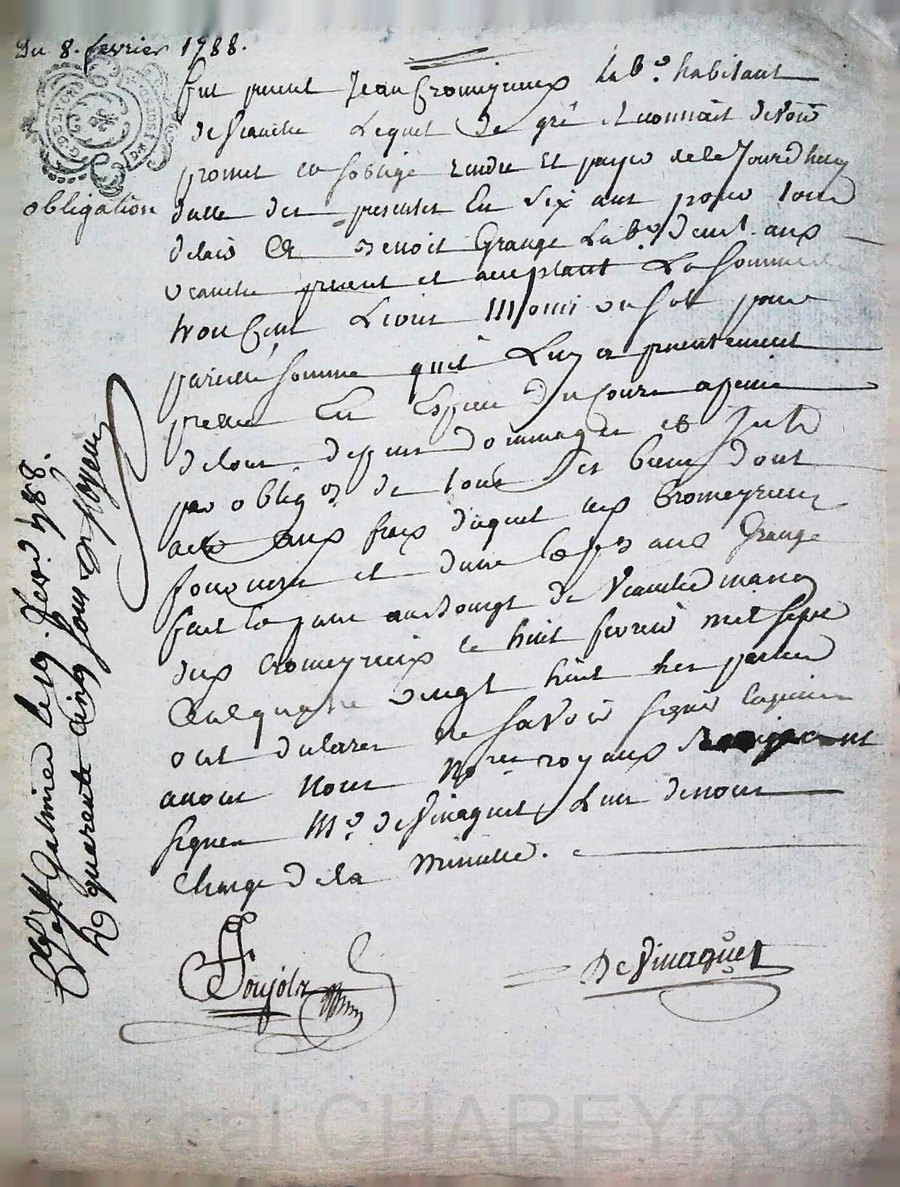 Du 8. fevrier 1788.
obligation
fut present Jean Cromeyrieux lab.r habitant
de Veauche Lequel de gré
promet et soblige rendre Et payer de ce Jourdhuy
datte des presentes En Six ans pour tout
delais a Benoit Grange Lab.r dud. aux
veauche present et acceptant La Somme
trois Cent Livres Moins un sol pour
pareille Somme quil Luy a presentement
preté En Espece du cours a peine
de tous depens dommages
par oblig.on de tous ses biens dont
acte aux frais duquel
fournira et dune aux Grange
fait et passé au Bourgt de Veauche maison
dux Cromeyrieux le huit fevrier mil sept
Cent quatre vingt huit les parties
ont declarer ne savoir signer
avons Nous No.res royaux
signer M.e deVinaquet Lun denous
Chargé de la Minutte.
Galmier le 19. fev. 788.
R quarente cinq sous
Poujolz
DeVinaquet
Pascal CHAREYRON